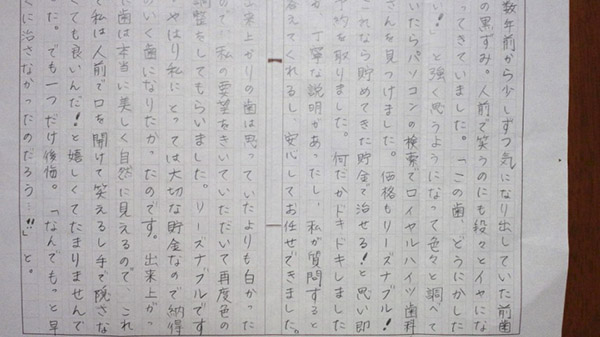 数年前から少しずつ気になり出していた前歯
の黒ずみ。人前で笑うのにも段々とイヤにな
ってきていました。「この歯、どうにかした
い!」と強く思うようになって色々と調べて
いたらパソコンの検索でロイヤルハイツ歯科
さんを見つけました。価格もリーズナブル!
これなら貯めてきた貯金で治せる!と思い即
予約を取りました。何だかドキドキしました
丁寧な説明があったし、私が質問すると
答えてくれるし、安心してお任せできました。
出来上がりの歯は思っていたよりも白かった
ので、私の要望をきいていただいて再度色の
調整をしてもらいました。リーズナブルです
やはり私にとっては大切な貯金なので納得
のいく歯になりたかったのです。出来上がっ
歯は本当に美しく自然に見えるので、これ
で私は人前で口を開けて笑えるし手で隠さな
ても良いんだ!と嬉しくてたまりませんで
した。でも一つだけ後悔。「なんでもっと早
に治さなかったのだろう…!!」と。